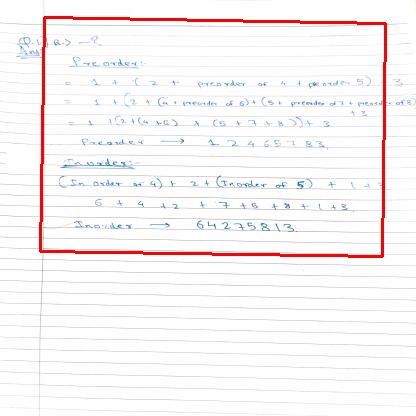 Q.1) B.> - ?
Ans:
Preorder:-
= 1 + (2 + preorder of 4 + preorder 5) + 3
= 1 + (2 + (4 + preorder of 6) + (5 + preorder of 7 + preorder of 8)
+ 3
= 1 + (2 + (4 + 6) + (5 + 7 + 8)) + 3
Preorder → 1 2 4 6 5 7 8 3.
Inorder:-
(In order of 4) + 2 + (Inorder of 5) + 1 + 3
6 + 4 + 2 + 7 + 5 + 8 + 1 + 3
Inorder → 6 4 2 7 5 8 1 3.